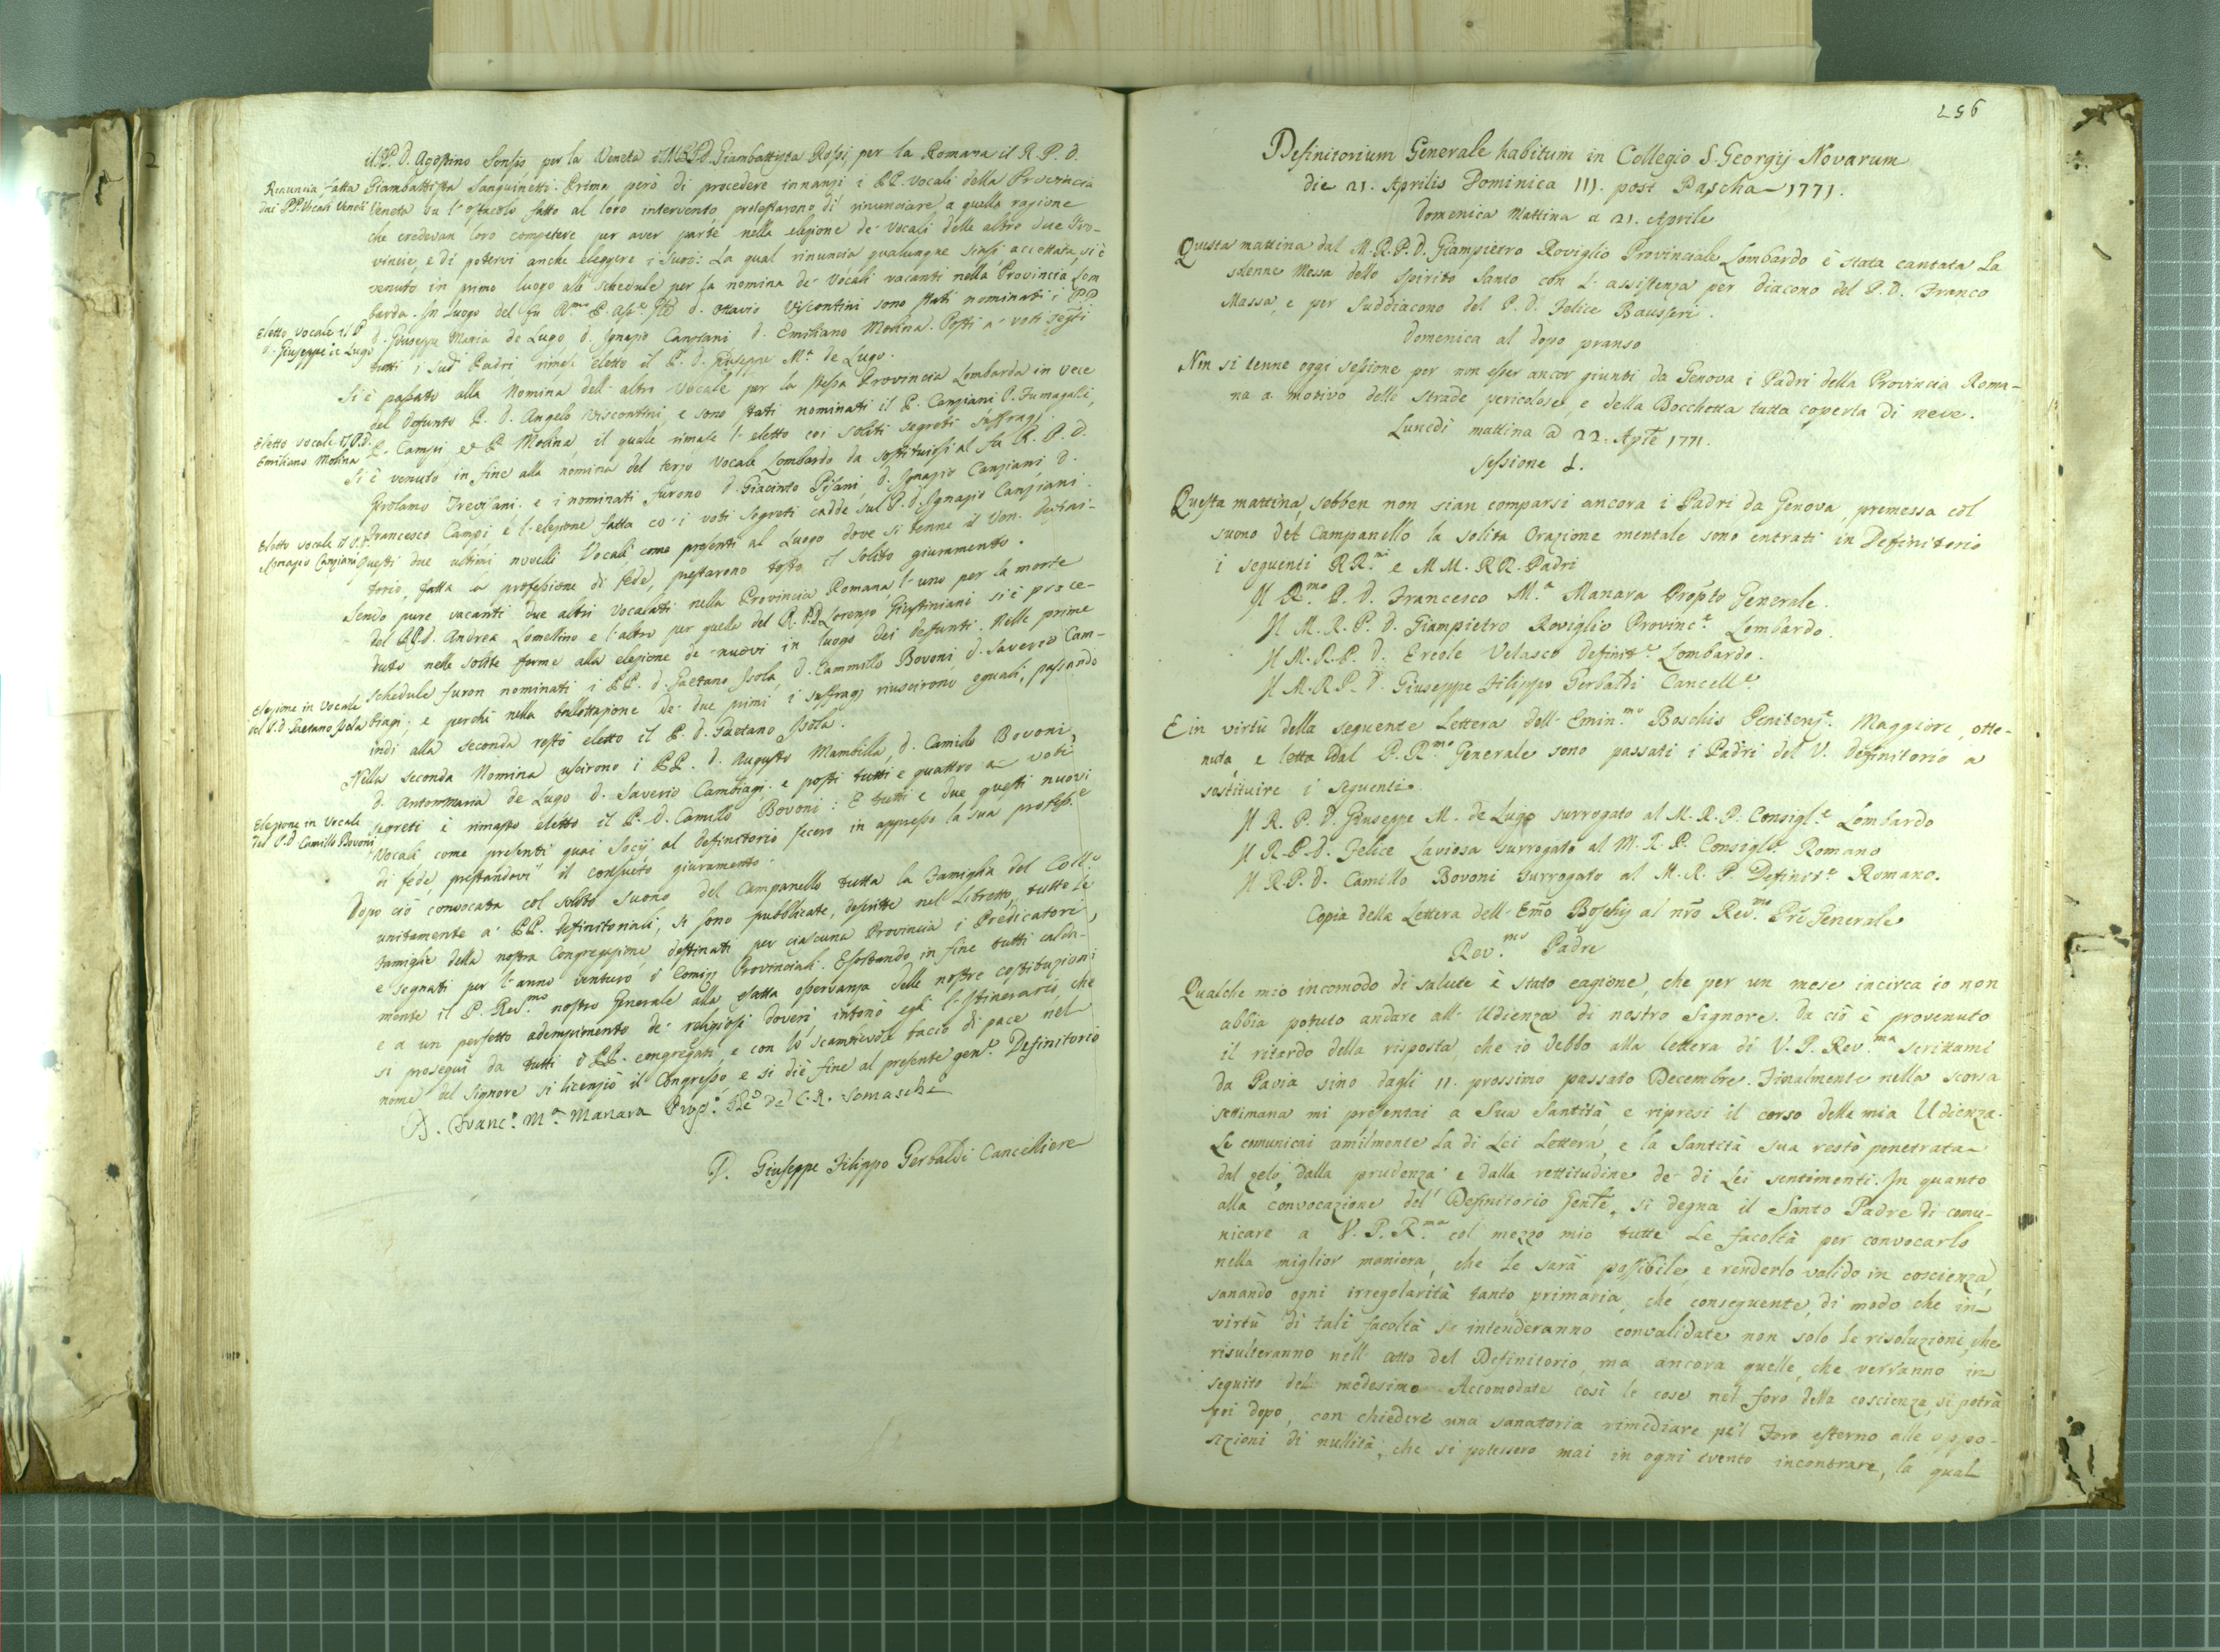 il P. D. Agostino Sonsis per la Veneta il M.R.P.D. Giambattista Rossi, per la Romana il R. P. D.
Rinuncia fatta
dai PP. Vocali Veneti
Giambattista Sanguinetti. Prima però di procedere innanzi i PP. Vocali della Provincia
Veneta su l'ostacolo fatto al loro intervento protestarono di rinunciare a quella ragione
che credevan loro competere per aver parte nella elezione de' Vocali delle altre due Pro-
vincie, e di potervi anche eleggere i suoi: La qual rinuncia qualunque siasi, accettata, si è
venuto in primo luogo alle schedule per la nomina de' Vocali vacanti nella Provincia Lom
barda. In Luogo del fu R.mo P. D. Ottavio Viscontini sono stati nominati i PP.
Eletto Vocale il P.
D. Giuseppe de Lugo
D. Giuseppe Maria de Lugo D. Ignazio Canziani D. Emiliano Molina. Posti a' voti segreti
tutti i sud.i Padri rimase eletto il P. D. Giuseppe M.a de Lugo.
Si è passato alla Nomina dell'altro Vocale per la stessa Provincia Lombarda in vece
del defunto P. D. Angelo Viscontini, e sono stati nominati il P. Canziani P. Fumagalli,
Eletto Vocale il P. D.
Emiliano Molina
P. Campi e P. Molina, il quale rimase l'eletto coi soliti segreti suffragi.
Si è venuto in fine alla nomina del terzo Vocale Lombardo da sostituirsi al fu R. P. D.
Girolamo Trevisani. e i nominati furono D. Giacinto Pisani, D. Ignazio Canziani D.
Francesco Campi e l'elezione fatta co' i voti segreti cadde sul P. D. Ignazio Canziani.
Eletto Vocale il P. D.
Ignazio Canziani
Questi due ultimi novelli Vocali come presenti al Luogo dove si tenne il Ven. Defini-
torio, fatta la professione di fede, prestarono tosto il solito giuramento.
Sendo pure vacanti due altri Vocalati nella Provincia Romana, l'uno per la morte
del P. D. Andrea Lomellino e l'altro per quella del R. P. D. Lorenzo Giustiniani si è proce-
duto nelle solite forme alla elezione de' nuovi in luogo dei defunti. Nelle prime
schedule furon nominati i PP. D. Gaetano Isola, D. Cammillo Bovoni, D. Saverio Cam-
Elezione in Vocale
del P. D. Gaetano Isola
biagi; e perchè nella ballottazione de' due primi i suffragj riuscirono eguali, passando
indi alla seconda restò eletto il P. D. Gaetano Isola.
Nella seconda Nomina uscirono i PP. D. Augusto Mambilla, D. Camillo Bovoni
D. Antonmaria de Lugo D. Saverio Cambiagi. e posti tutti e quattro a voti
Elezione in Vocale
del P. D. Camillo Bovoni
segreti è rimasto eletto il P. D. Camillo Bovoni: E tutti e due questi nuovi
Vocali come presenti quai Socij al Definitorio fecero in appresso la sua profess.e
di fede prestandovi il consueto giuramento.
Dopo ciò convocata col solito suono del Campanello tutta la Famiglia del Coll.o
unitamente a' PP. Definitoriali, si sono pubblicate, descritte nel Libretto, tutte le
Famiglie della nostra Congregazione, destinati per ciascuna Provincia i Predicatori,
e segnati per l'anno venturo i Comizj Provinciali. Esortando in fine tutti calda-
mente il P. Rev.mo nostro Generale alla esatta osservanza delle nostre costituzioni
e a un perfetto adempimento de' religiosi doveri intonò egli l'Itinerario, che
si proseguì da tutti i PP. congregati, e con lo scambievole bacio di pace nel
nome del Signore si licenziò il Congresso e si diè fine al presente gen.le Definitorio
D. Franc.o M.a Manara Prep.o Gle de' C. R. Somaschi
D. Giuseppe Filippo Gerbaldi Cancelliere
256
Definitorium Generale habitum in Collegio S. Georgij Novarum
die 21. Aprilis Dominica III. post Pascha 1771.
Domenica Mattina a 21. Aprile
Questa mattina dal M. R. P. D. Giampietro Roviglio Provinciale Lombardo è stata cantata la
solenne Messa dello Spirito Santo con l'assistenza per diacono del P. D. Franco
Massa, e per Suddiacono del P. D. Felice Bausseri.
Domenica al dopo pranso
Non si tenne oggi sessione per non esser ancor giunti da Genova i Padri della Provincia Roma-
na a motivo delle strade pericolose, e della Bocchetta tutta coperta di neve.
Lunedì mattina a 22. Aple 1771.
Sessione I.
Questa mattina, sebben non sian comparsi ancora i Padri da Genova, premessa col
suono del Campanello la solita Orazione mentale sono entrati in Definitorio
i seguenti RR.mi e MM. RR. Padri
Il R.mo P. D. Francesco M.a Manara Prop̃to Generale.
Il M. R. P. D. Giampietro Roviglio Provinc.e Lombardo.
Il M. R. P. D. Ercole Velasco Definit.e Lombardo.
Il M. R. P. D. Giuseppe Filippo Gerbaldi Cancell.e
E in virtù della seguente Lettera dell'Emin.mo Boschis Penitenz.e Maggiore, otte-
nuta, e letta dal P. R.mo Generale sono passati i Padri del V. Definitorio a
sostituire i seguenti.
Il R. P. D. Giuseppe M. de Lugo surrogato al M. R. P. Consigl.e Lombardo
Il R. P. D. Felice Laviosa surrogato al M. R. P. Consigle Romano
Il R. P. D. Camillo Bovoni surrogato al M. R. P. Definit.e Romano.
Copia della Lettera dell'Em̃o Boschij al nr̃o Rev.mo Pr̃e Generale
Rev.mo Padre
Qualche mio incomodo di salute è stato cagione, che per un mese incirca io non
abbia potuto andare all'Udienza di nostro Signore. Da ciò è provenuto
il ritardo della risposta, che io debbo alla lettera di V. P. Rev.ma scrittami
da Pavia sino dagli 11. prossimo passato Decembre. Finalmente nella scorsa
settimana mi presentai a Sua Santità e ripresi il corso della mia Udienza.
Le comunicai umilmente la di Lei Lettera, e la Santità sua restò penetrata
dal zelo, dalla prudenza e dalla rettitudine de' di Lei sentimenti. In quanto
alla convocazione del Definitorio Genle, si degna il Santo Padre di comu-
nicare a V. P. R.ma col mezzo mio tutte le facoltà per convocarlo
nella miglior maniera, che le sarà possibile, e renderlo valido in coscienza,
sanando ogni irregolarità tanto primaria, che conseguente, di modo che in
virtù di tali facoltà s'intenderanno convalidate non solo le risoluzioni, che
risulteranno nell'atto del Definitorio, ma ancora quelle, che verranno in
seguito del medesimo. Accomodate così le cose nel foro della coscienza, si potrà
poi dopo, con chiedere una sanatoria rimediare pe'l Foro esterno alle oppo-
sizioni di nullità, che si potessero mai in ogni evento incontrare, la qual